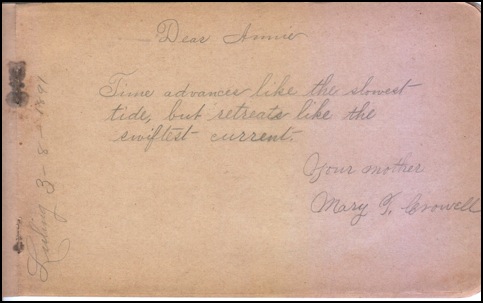 Dear Annie
Time advances like the slowest
tide, but retreats like the
swiftest current.
Your mother
Mary F. Crowell
Luling 3-8-1891